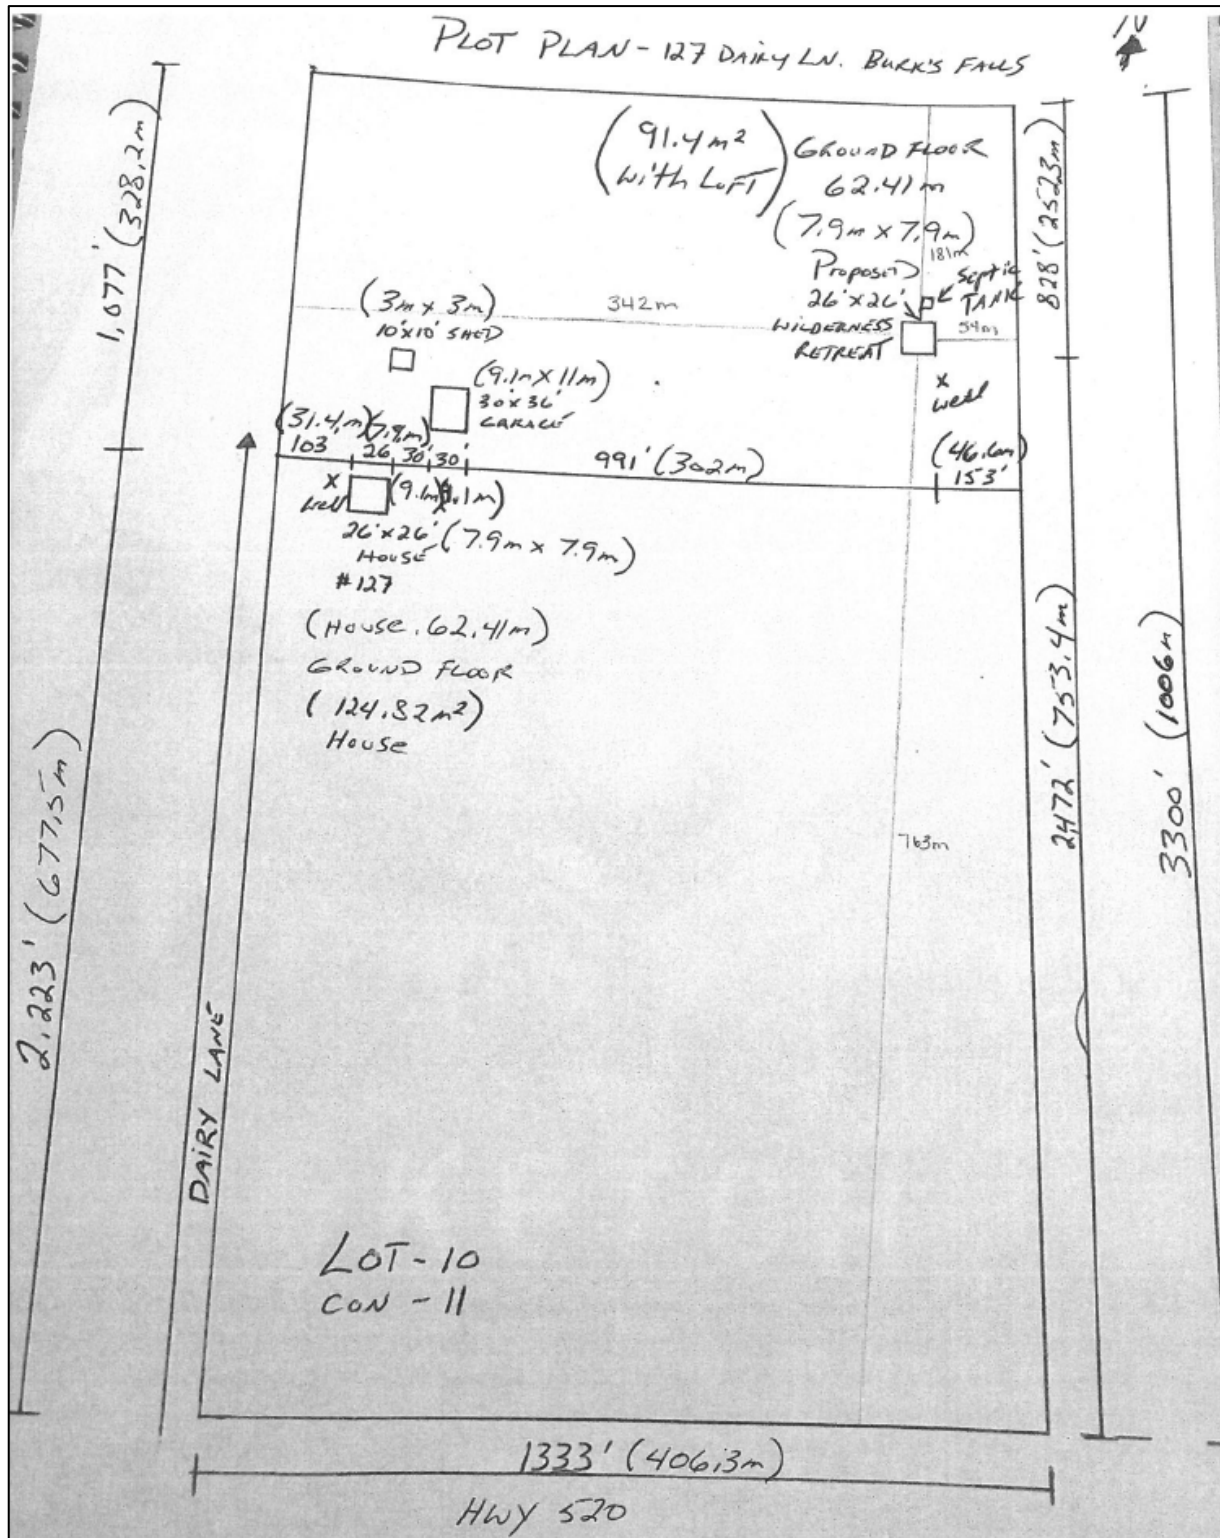 PLOT PLAN - 127 DAIRY LN. BURK'S FALLS
N
1,077' (328.2m)
(91.4 m²
with LOFT)
GROUND FLOOR
62.41m
(7.9m x 7.9m)
828' (252.3m)
181m
Proposed
26'x26'
WILDERNESS
RETREAT
Septic
TANK
342m
54m
(3m x 3m)
10'x10' SHED
(9.1m X 11m)
30'x36'
GARAGE
x
well
(31.4m)
103
(7.9m)
26
30'
30'
991' (302m)
(46.6m)
153'
x
well
(9.1m)
26'x26'
HOUSE
#127
(7.9m x 7.9m)
(House. 62.41m)
GROUND FLOOR
(124.82m²)
House
2,223' (677.5m)
2,472' (753.4m)
3300' (1006m)
763m
DAIRY LANE
LOT-10
CON -11
1333' (406.3m)
HWY 520